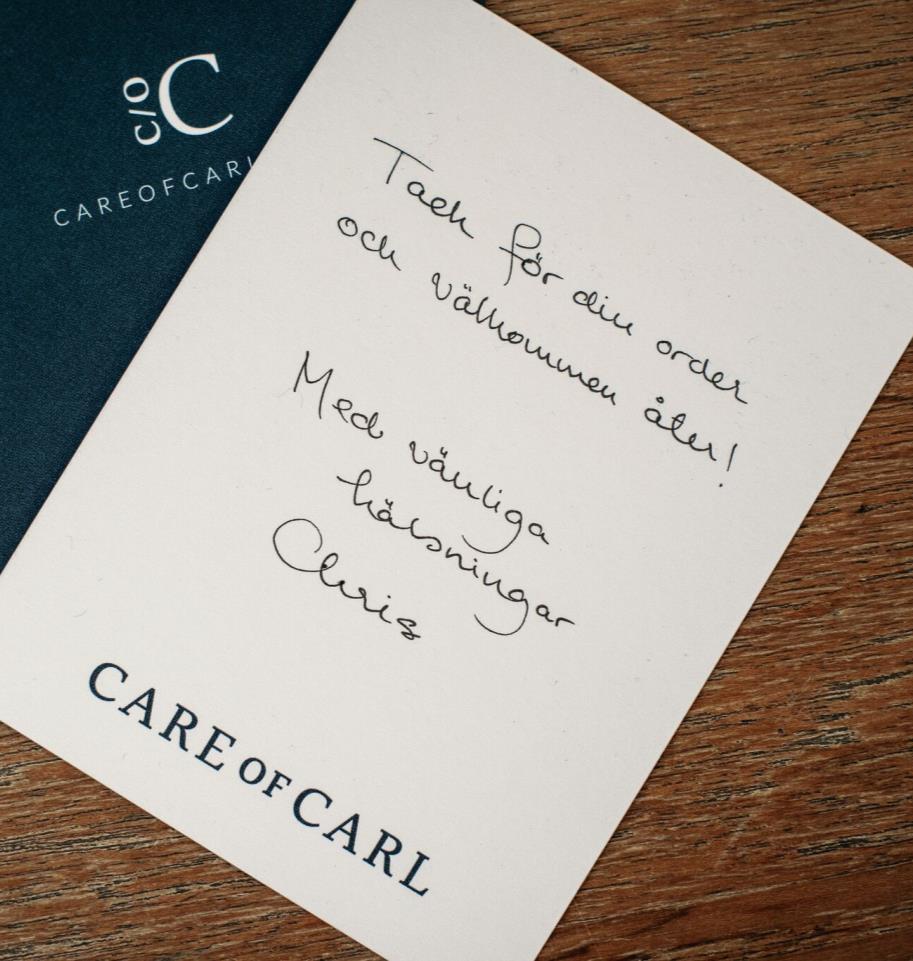 C/O C
CAREOFCARL
Tack för din order
och välkommen åter!
Med vänliga
hälsningar
Chris
CARE OF CARL